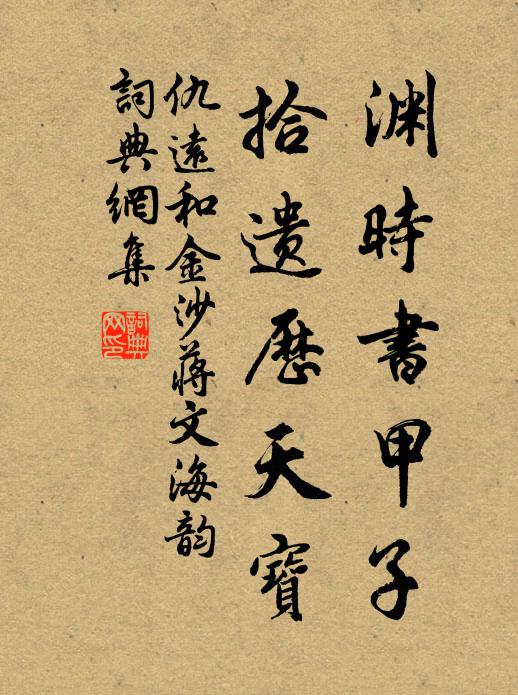 渊時書甲子
拾遺歷天寶
仇遠和金沙蔣文海韵
詞典網集
詞典網印